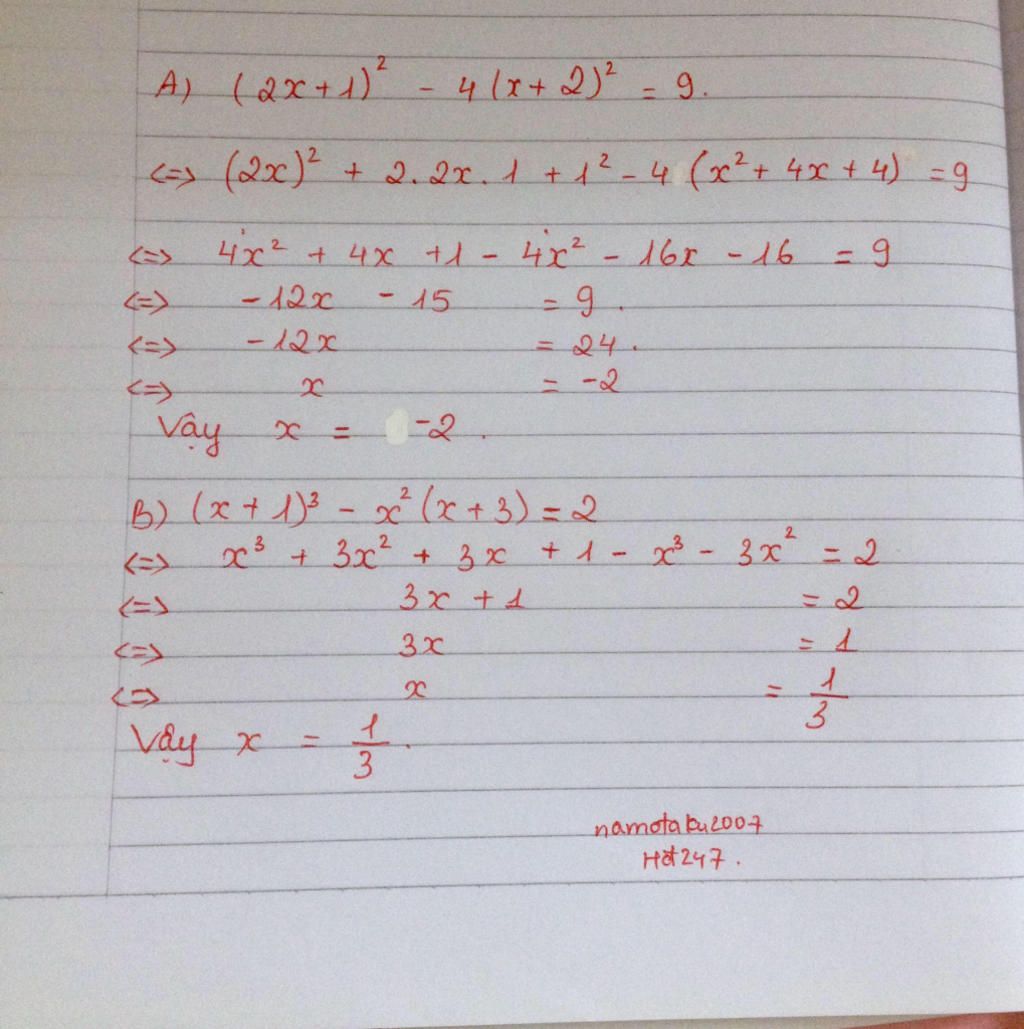 A) (2x+1)² - 4(x+2)² = 9.
<=> (2x)² + 2.2x.1 + 1² - 4 (x² + 4x + 4) = 9
<=> 4x² + 4x + 1 - 4x² - 16x - 16 = 9
<=> -12x - 15 = 9.
<=> -12x = 24.
<=> x = -2
Vậy x = -2.
B) (x+1)³ - x²(x+3) = 2
<=> x³ + 3x² + 3x + 1 - x³ - 3x² = 2
<=> 3x + 1 = 2
<=> 3x = 1
<=> x = 1/3
Vậy x = 1/3.
namotaku2007